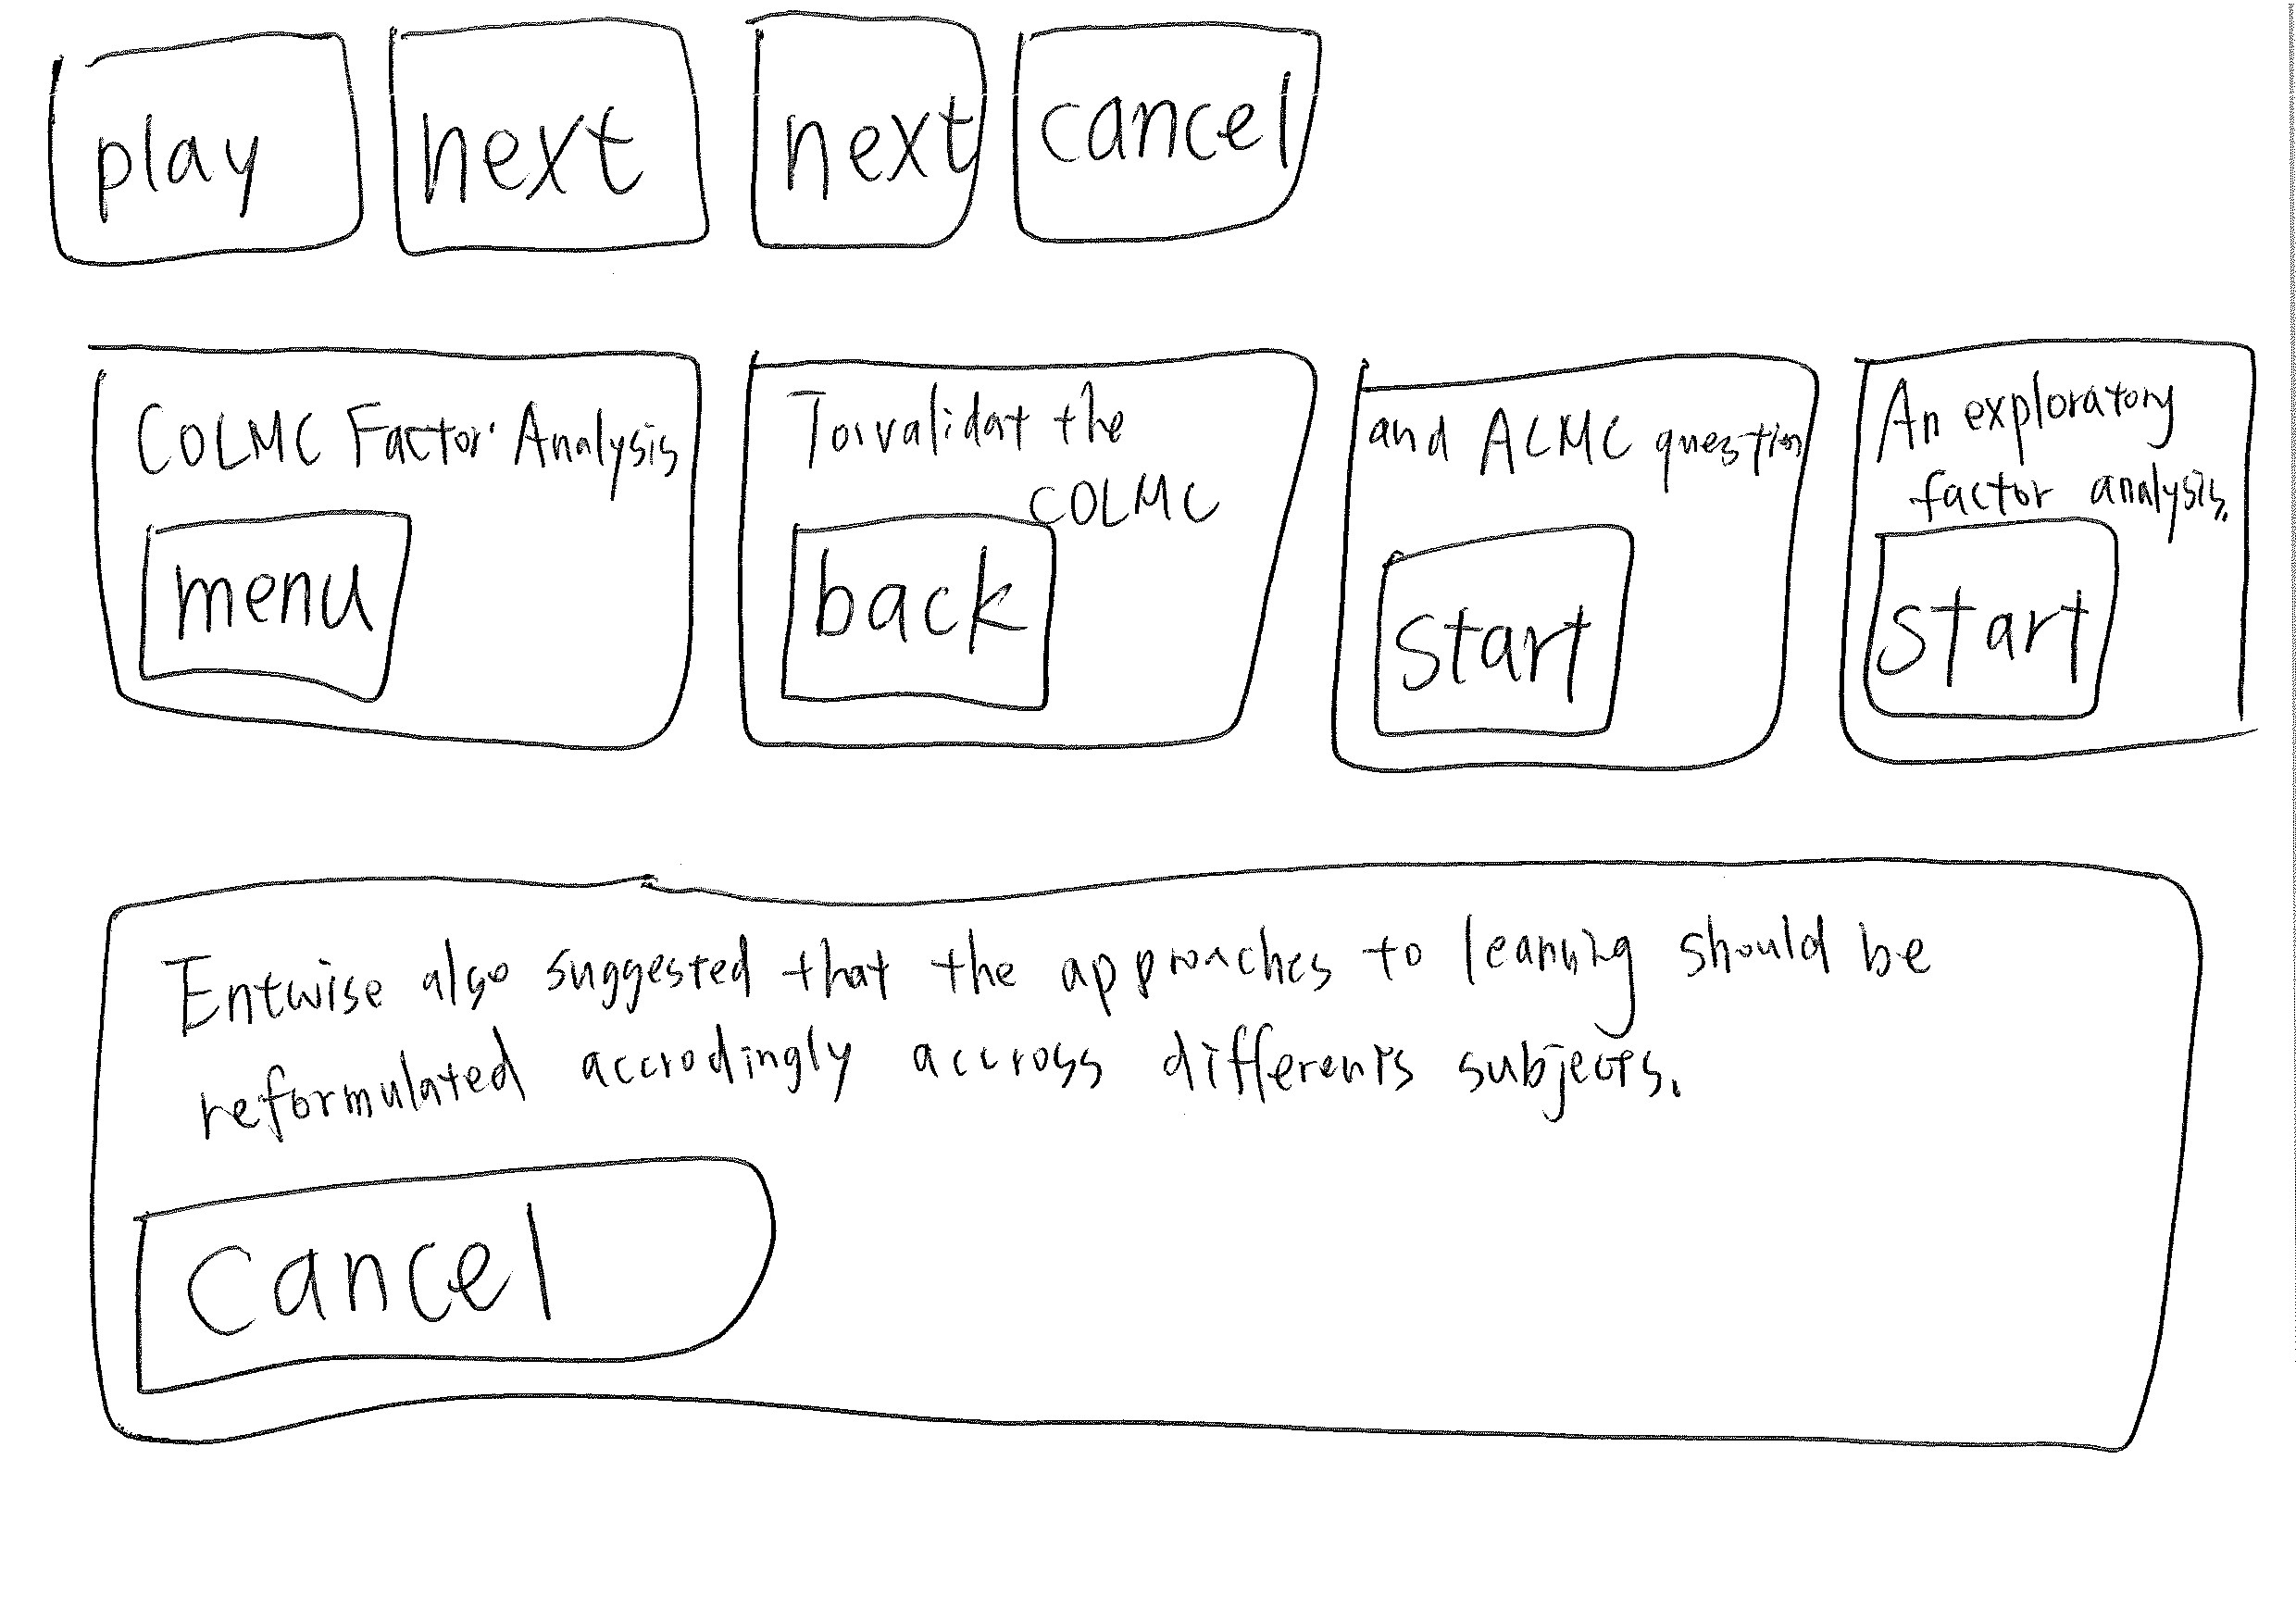 play next next cancel
COLMC Factor Analysis
menu
the
COLMC
back
and ACMC question
start
An exploratory
factor analysis.
start
Entwise also suggested that the approaches to learning should be
reformulated accrodingly accross differents subjects.
cancel